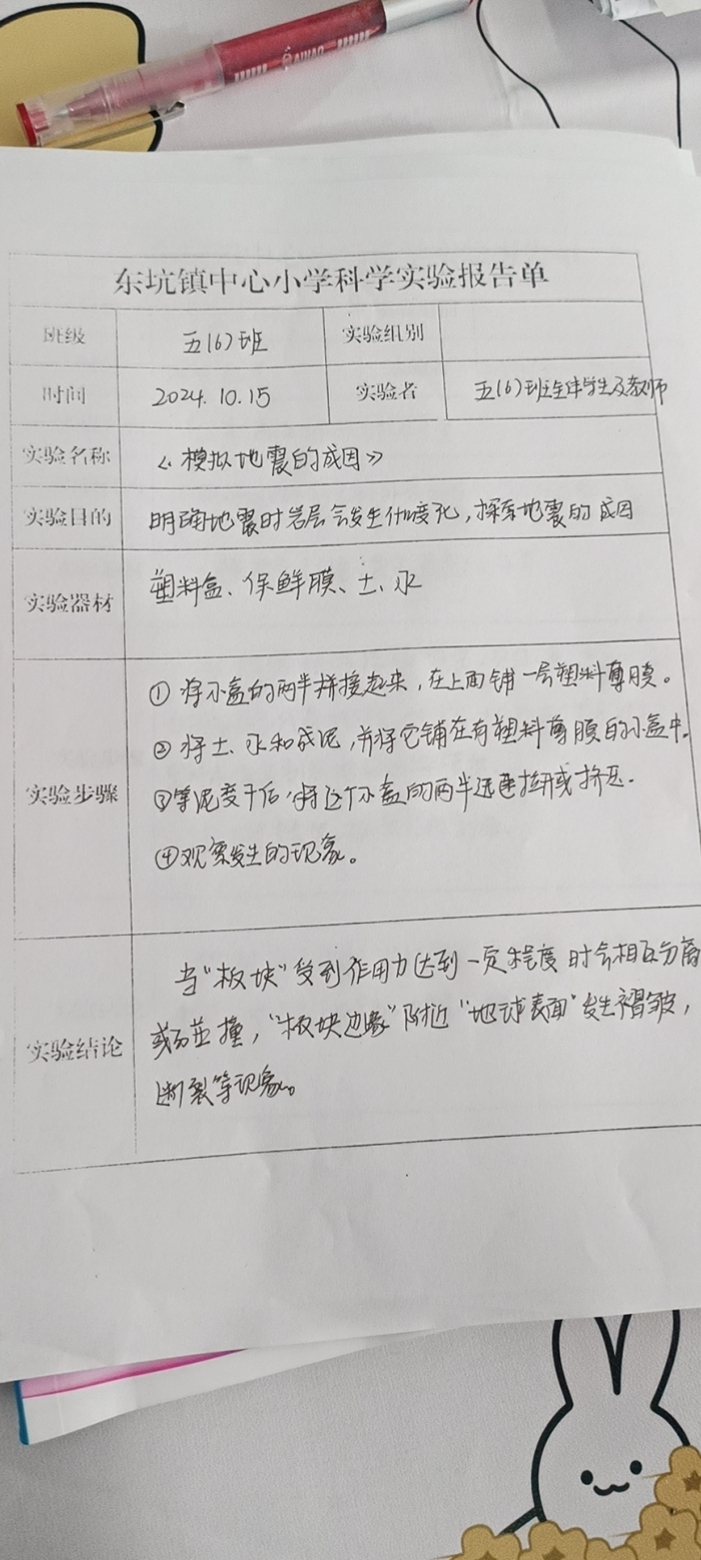 东坑镇中心小学科学实验报告单
班级 五(6)班 实验组别
时间 2024.10.15 实验者 五(6)班全体学生及教师
实验名称 《模拟地震的成因》
实验目的 明确地震时岩层会发生什么变化,探索地震的成因
实验器材 塑料盒、保鲜膜、土、水
① 将小盒的两半拼接起来,在上面铺一层塑料薄膜。
② 将土、水和成泥,并将它铺在有塑料薄膜的小盒中。
实验步骤 ③等泥变干后,将这个小盒的两半迅速拉开或挤压.
④观察发生的现象。
当“板块”受到作用力达到一定程度时会相互分离
或碰撞,“板块边缘”附近“地球表面”发生褶皱,
实验结论
断裂等现象。